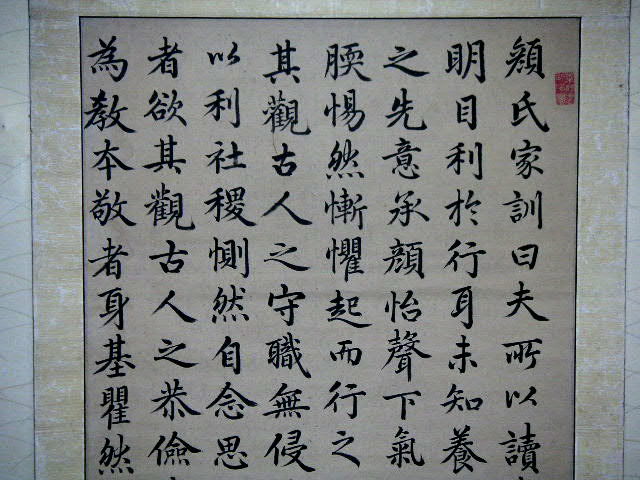 顔氏家訓曰夫所以讀
明目利於行耳未知養
之先意承顔怡聲下氣
腝惕然慚懼起而行之
其觀古人之守職無侵
以利社稷惻然自念思
者欲其觀古人之恭儉
為教本敬者身基瞿然